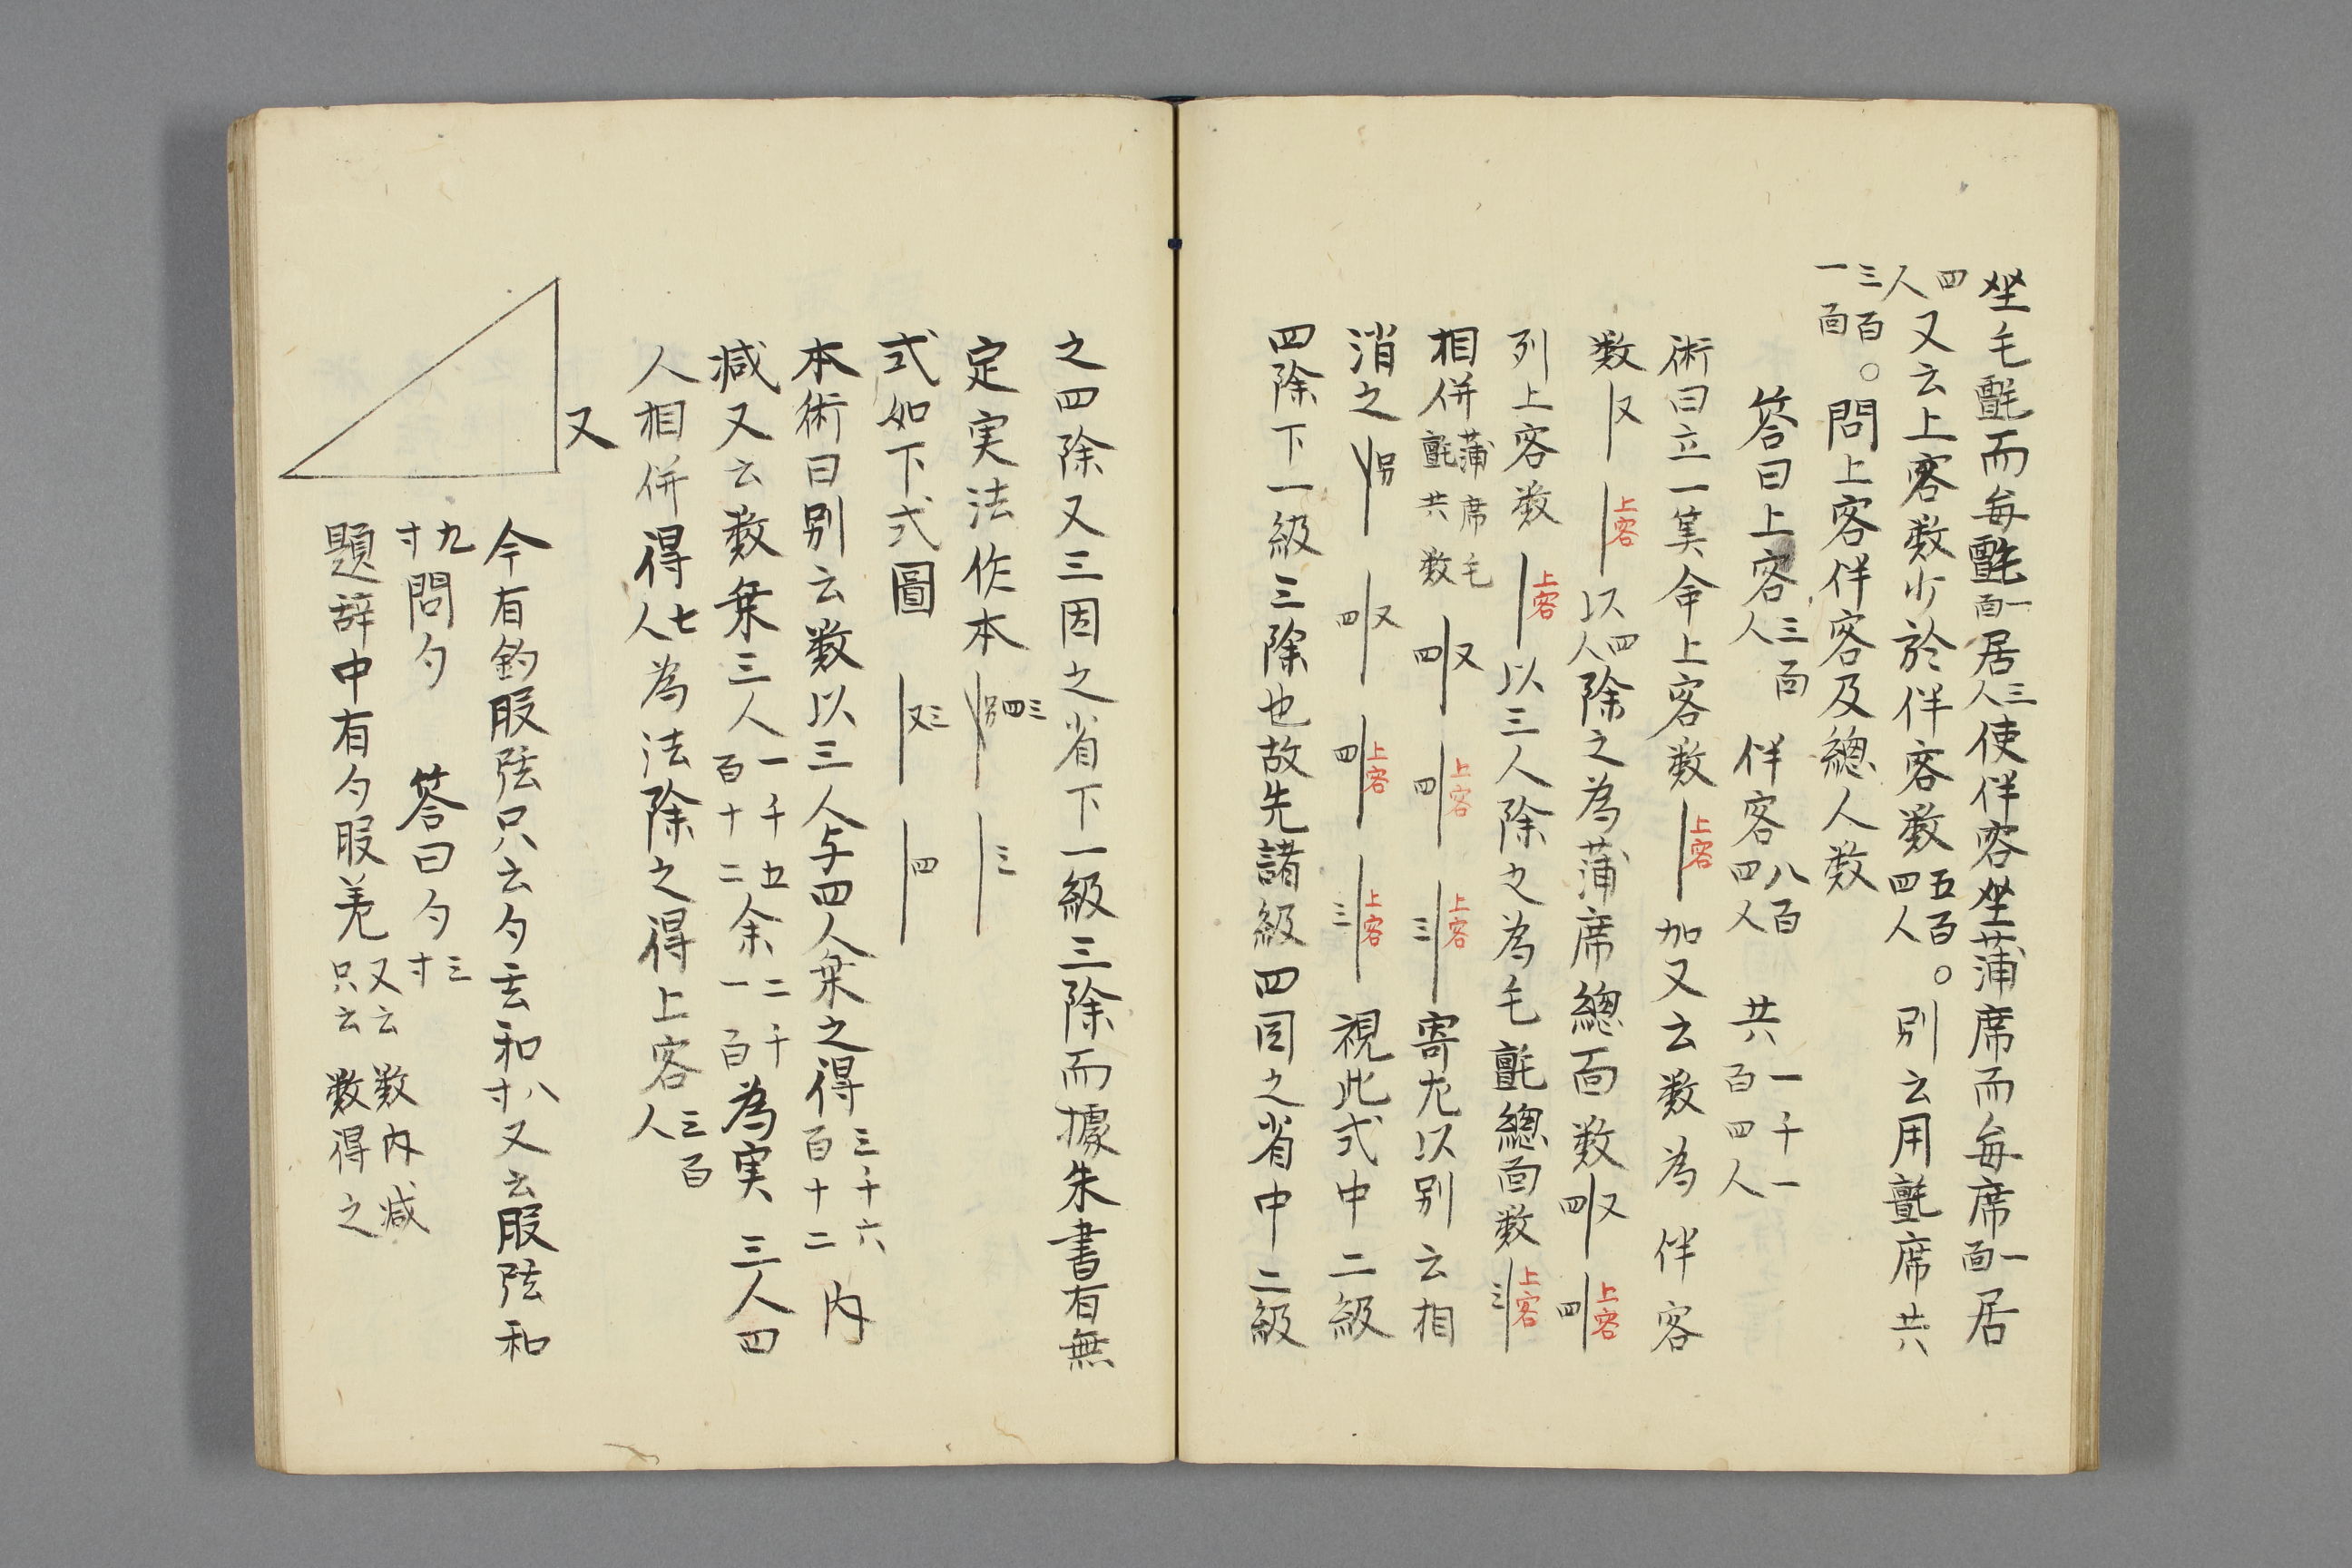 坐毛氈而每氈一面居三人使伴客坐蒲席而每席一面居
四人又云上客数少於伴客数五百四人。別云用氈席共
三百一面。問上客伴客及總人数
答曰上客三百人 伴客八百四人 共一千一百四人
術曰立一筭命上客数 上客 加又云数為伴客
数 又 上客 以四人除之為蒲席總面数 又四 上客四
列上客数 上客 以三人除之為毛氈總面数 上客三
相併蒲席毛氈共数 又四 上客四 上客三 寄九以別云相
消之 別 又四 上客四 上客三 視此式中二級
四除下一級三除也故先諸級四因之省中二級
之四除又三因之省下一級三除而據朱書有無
定実法作本 三四別 三
式如下式圖 三又 四
本術曰別云数以三人与四人乗之得三千六百十二内
減又云数乗三人一千五百十二余二千一百為実 三人四
人相併得七人為法除之得上客三百人
又
今有鈎股弦只云勺玄和八寸又云股弦和
九寸問勺 答曰勺三寸
題辞中有勺股差又云数内減只云数得之